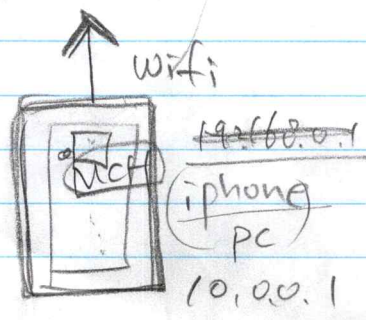 wifi
192.168.0.1
iphone
pc
10.0.0.1